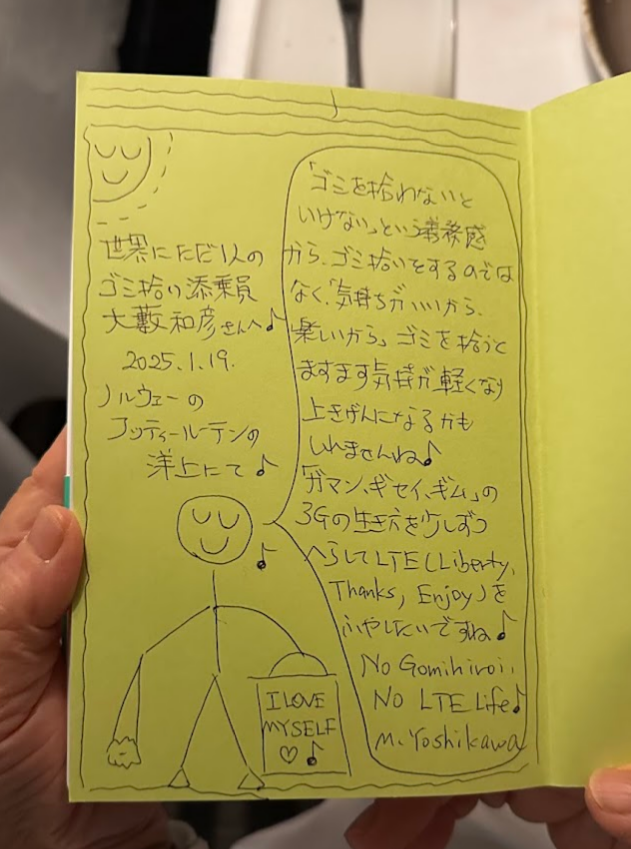 世界にただ1人の
ゴミ拾い添乗員
大藪和彦さんへ♪
2025.1.19.
ノルウェーの
フッティルーテンの
洋上にて♪
「ゴミを拾わないと
いけない」という義務感
から、ゴミ拾いをするのでは
なく、「気持ちがいいから、
楽しいから」ゴミを拾うと
ますます気持が軽くなり
上きげんになるかも
しれませんね♪
「ガマン、ギセイ、ギム」の
3Gの生き方を少しずつ
へらしてLTE(Liberty,
Thanks, Enjoy)を
ふやしたいですね♪
No Gomihiroi,
No LTE Life♪
M. Yoshikawa
I LOVE
MYSELF
♡♪